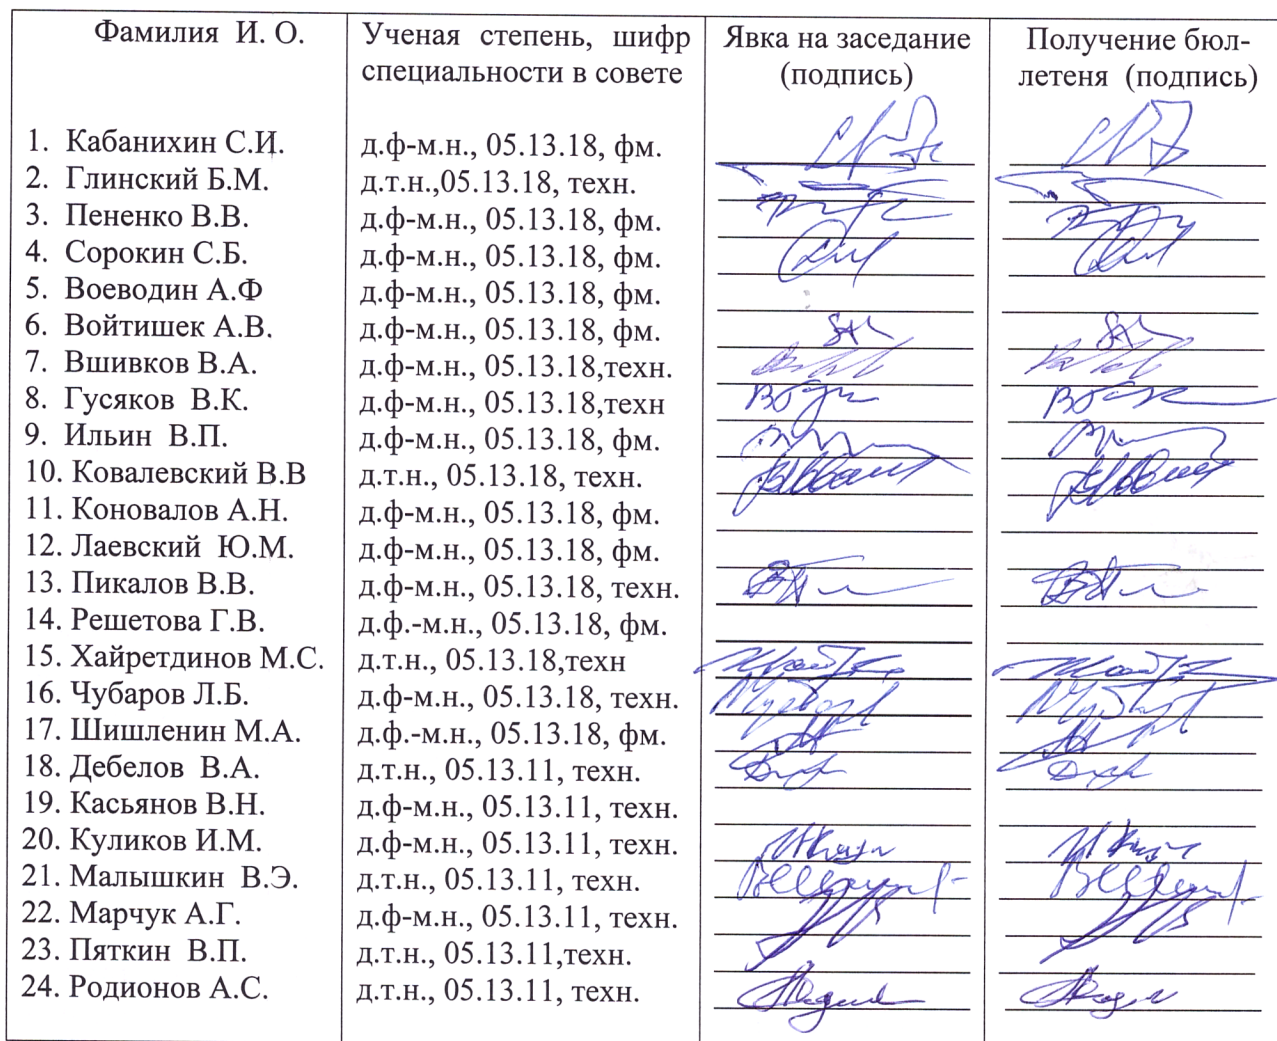 Фамилия И. О.
Ученая степень, шифр
специальности в совете
Явка на заседание
(подпись)
Получение бюл-
летеня (подпись)
1. Кабанихин С.И. д.ф-м.н., 05.13.18, фм.
2. Глинский Б.М. д.т.н.,05.13.18, техн.
3. Пененко В.В. д.ф-м.н., 05.13.18, фм.
4. Сорокин С.Б. д.ф-м.н., 05.13.18, фм.
5. Воеводин А.Ф д.ф-м.н., 05.13.18, фм.
6. Войтишек А.В. д.ф-м.н., 05.13.18, фм.
7. Вшивков В.А. д.ф-м.н., 05.13.18,техн.
8. Гусяков В.К. д.ф-м.н., 05.13.18,техн
9. Ильин В.П. д.ф-м.н., 05.13.18, фм.
10. Ковалевский В.В д.т.н., 05.13.18, техн.
11. Коновалов А.Н. д.ф-м.н., 05.13.18, фм.
12. Лаевский Ю.М. д.ф-м.н., 05.13.18, фм.
13. Пикалов В.В. д.ф-м.н., 05.13.18, техн.
14. Решетова Г.В. д.ф.-м.н., 05.13.18, фм.
15. Хайретдинов М.С. д.т.н., 05.13.18,техн
16. Чубаров Л.Б. д.ф-м.н., 05.13.18, техн.
17. Шишленин М.А. д.ф.-м.н., 05.13.18, фм.
18. Дебелов В.А. д.т.н., 05.13.11, техн.
19. Касьянов В.Н. д.ф-м.н., 05.13.11, техн.
20. Куликов И.М. д.ф-м.н., 05.13.11, техн.
21. Малышкин В.Э. д.т.н., 05.13.11, техн.
22. Марчук А.Г. д.ф-м.н., 05.13.11, техн.
23. Пяткин В.П. д.т.н., 05.13.11,техн.
24. Родионов А.С. д.т.н., 05.13.11, техн.